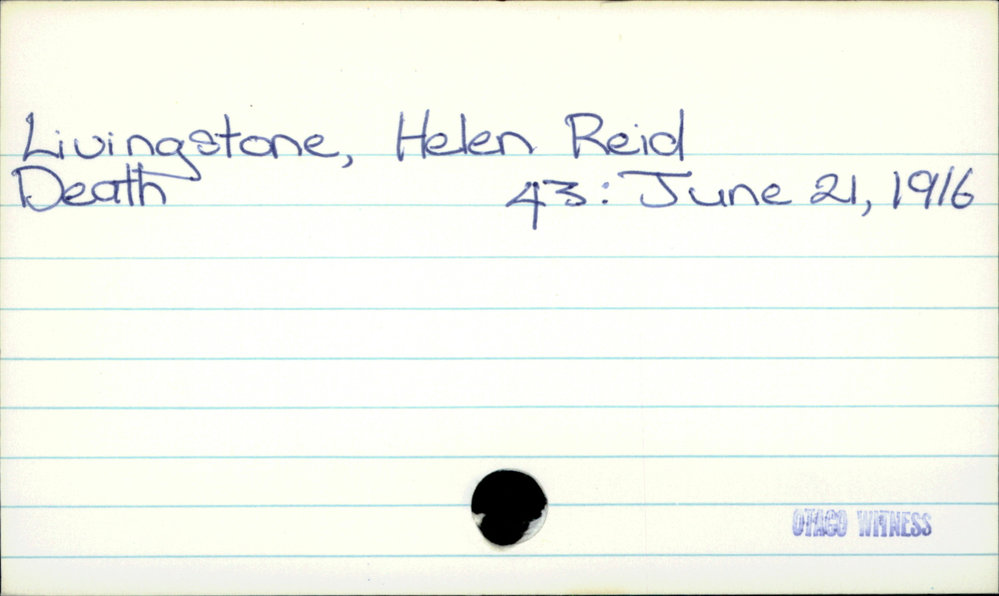 Livingstone, Helen Reid
Death 43: June 21, 1916
OTAGO WITNESS